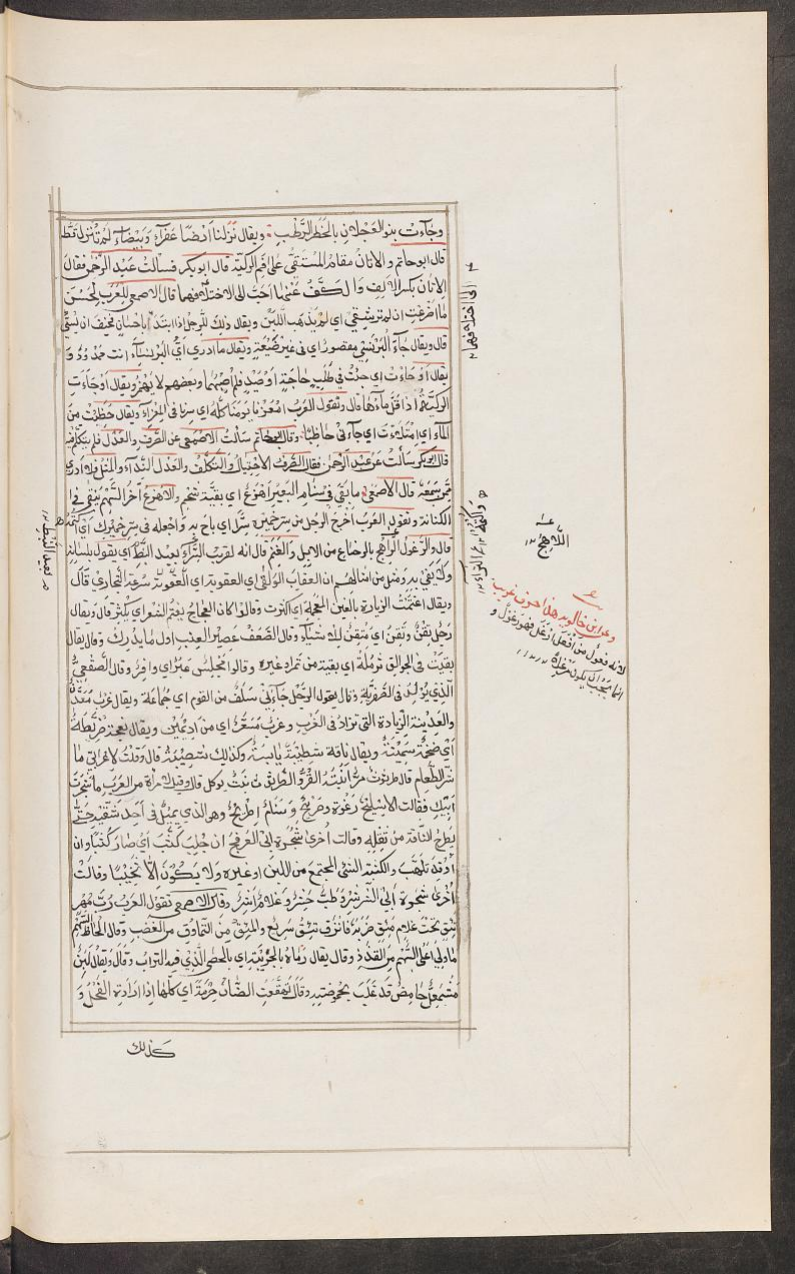 وجآءت بنو العجلان بالخطر الرطب ويقال نزلنا ارضًا عفرآء وبيضاء لم تنزل قط
قال ابو حاتم والاتان مقام المستقى على فم الركية قال ابو بكر فسالت عبد الرحمن فقال
الاتان بكسر الالف والكف عنها احب الى الاختلاف فيهما قال الاصمعى للعرب لحسن
ما اضرعت ان لم ترشقى اى لم يذهب اللبن ويقال ذلك للرجل اذا ابتدأ باحسان مخيف ان يسئ
قال ويقال جآء البرنسى مقصور اى فى غير ضيعة ويقال ما ادرى اى البرنساء انت ممدود و
يقال اوجاءت اى جئت فى طلب حاجة او صيد فلم اصبهما وبعضهم لا يهمز ويقال اوجأت
الركية اذا قل مآءها قال وتقول العرب امعزنا يومنا كله اى سرنا فى المعزاء ويقال حظبت من
المآء اى امتلأت اى جآءنى حاظبًا وقال ابو حاتم سالت الاصمعى عن الصرف والعدل فلم يتكلم فيه
قال ابو بكر سالت عنه عبد الرحمن فقال الصرف الاحتيال والتكلف والعدل الفداء والمثل فلا ادرى
ممن سمعه قال الاصمعى ما بقى فى سنام البعير اهزع اى بقية شحم والاهزع آخر السهم يبقى فى ا
الكنانة وتقول العرب اخرج الرجل من سر خميره سرًا اى باح به واجعله فى سر خميرك اى اكتمه
قال والزغول اللاهج بالرضاع من الابل والغنم قال انه لقريب الثراء بعيد النبط اى يقول بلسانه
ولا يفى به ومثل من امثالهم ان العقاب الولقى اى العقوبة اى العقوبة سرعة التجارى قال
ويقال اغثمت الزيارة بالغين المعجمة اى اكثرت وقالوا كان العجاج يغثم الشعر اى يكثر قال ويقال
رجل تقن وتقن اى متقن للاشياء وقال الضعف عصير العنب اول ما يدرك وقال يقال
بقيت فى الجوالق ثرملة اى بقية من تمر او غيره وقالوا مجلس عبر اى وافر وقال الصقعى
الذى يولد فى الصفرية وقال يقول الرجل جآءنى سلف من القوم اى جماعة ويقال غرب معدن
والعدينة الزيادة التى تزاد فى الغرب وغرب مسعن اى من اديمين ويقال نعجة ضريطة
اى ضخمة سمينة ويقال ناقة شطيبة يابسة وكذلك شصيبة قال وقلت لاعرابى ما
شر الطعام قال طرثوث مر انبته القر والطرثوث نبت يؤكل قال وقيل لامراة من العرب ما شجرة
ابيك فقالت الاسليح رغوة وصريح وسنام اطريح وهو الذى يميل فى احد شقيه حتى
يطرح الناقة من ثقله وقالت اخرى شجرة ابى العرفج ان حلب كثب اى صار كثبًا وان
اوقد تلهب والكثبة الشئ المجتمع من اللبن او غيره ولا يكون الا نخيبًا وقالت
اخرى شجرة ابى الشرشر وطب حشر وغلام اشر وقال الاصمعى تقول العرب رب مهر
تئق تحت غلام مئق ضربه فانزق تئق سريع والمئق من التماوق من الغضب وقال لحاظ السهم
ما ولى اعلى السهم من القذذ وقال يقال رماه بالجرثية اى بالحصى الذى فيه التراب وقال ويقال لبن
مشمعل حامض قد غلب بحموضته وقال تهقعت الضان حرمة اى كلها اذا ارادت الفحل و
كذلك
الى اختلاف فيهما
بعيد النبط
اللاهج
وعن ابن خالويه هذا حرف غريب
لانه فعول من افعل ازغل فهو زغول و
انما يجب ان يكون مزغلا